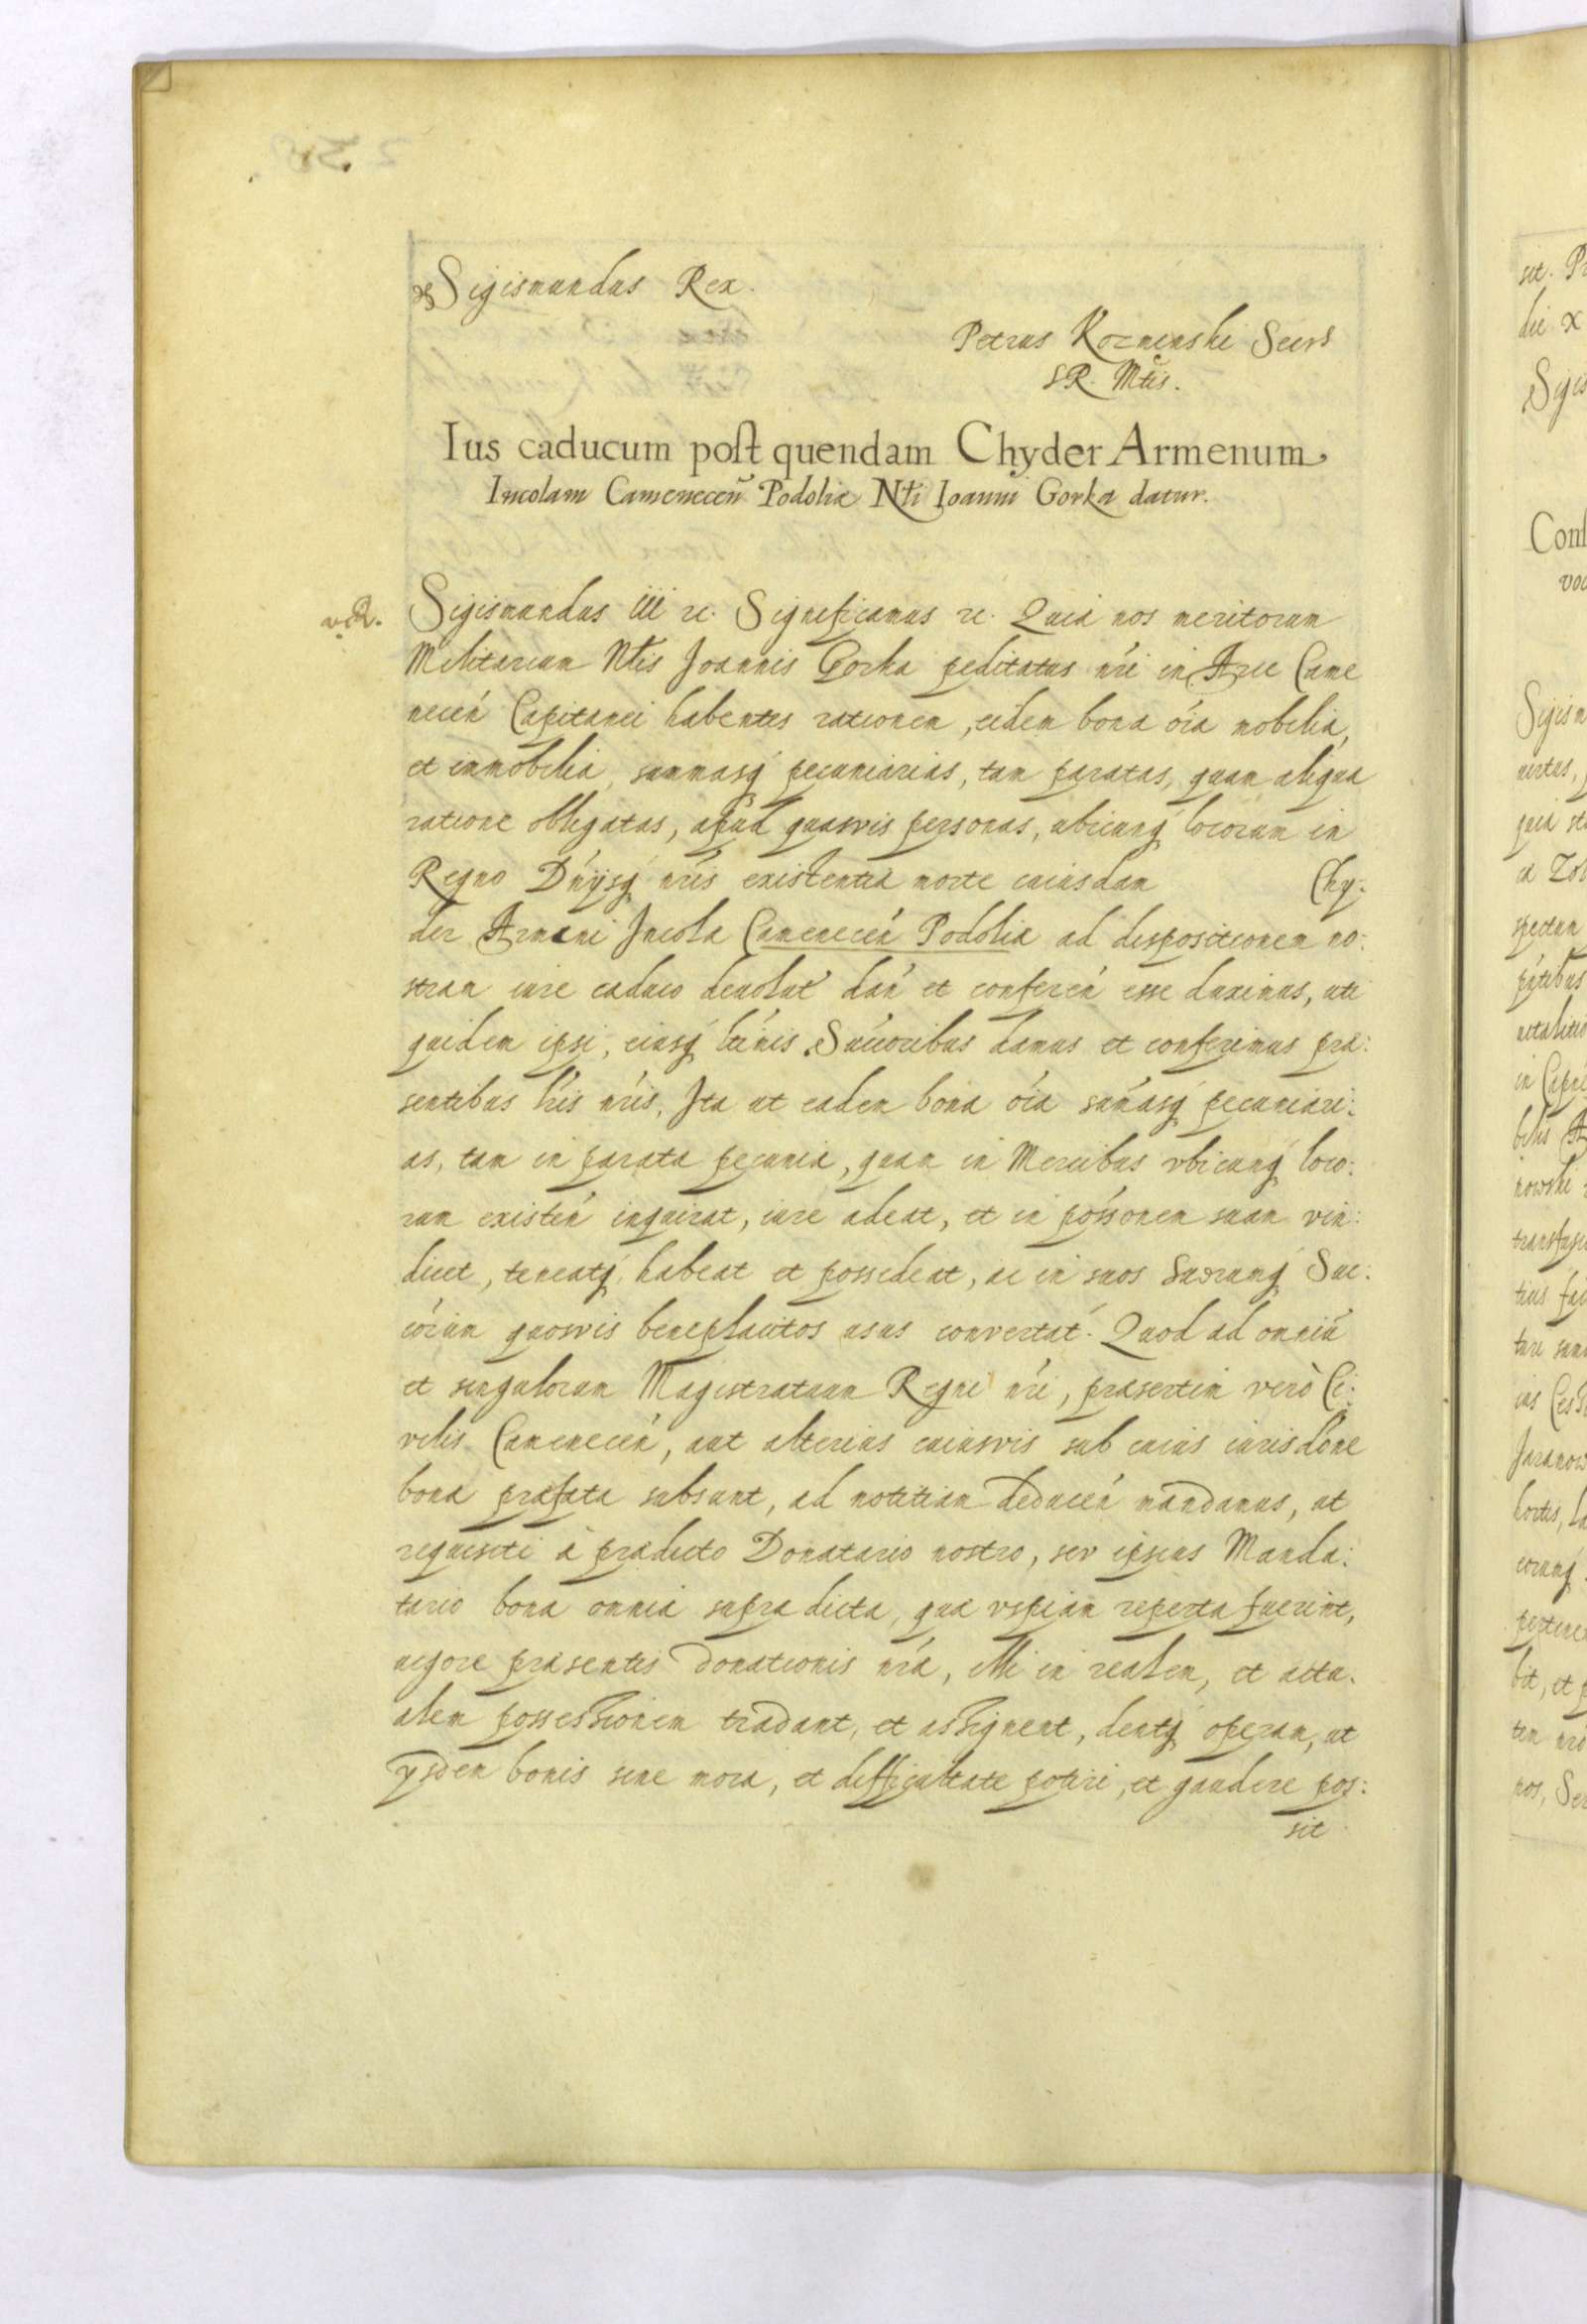 Sigismundus Rex.
Petrus Kozminski Secrs
S R. Mtis.
Ius caducum post quendam Chyder Armenum
Incolam Camenecen̄ Podoliæ Nti Ioanni Gorka datur.
Sigismundus iii rc. Significamus rc. Quia nos meritorum
Militarium Ntis Joannis Gorka peditatus nr̄i in Arce Came
necen̄ Capitanei habentes rationem, eidem bona oīa mobilia,
et immobilia, summasq pecuniarias, tam paratas, quam aliqua
ratione obligatas, apud quasvis personas, ubicunq locorum in
Regno Dn̄ysq nr̄is existentia morte cuiusdam Chy:
der Armeni Incolæ Camenecen̄ Podoliæ ad dispositionem no:
stram iure caduco devolut̄ dan̄ et conferen̄ esse duximus, uti
quidem ipsi, eiusq ltīmis Succ̄oribus damus et conferimus præ:
sentibus lr̄is nr̄is. Ita ut eadem bona oīa sum̄asq pecuniari:
as, tam in parata pecunia, quam in Mercibus vbicunq loco:
rum existen̄ inquirat, iure adeat, et in poss̄onem suam vin:
dicet, teneatq, habeat et possideat, ac in suos suorumq Suc:
cōrum quosvis beneplacitos usus convertat. Quod ad omniū
et singulorum Magistratuum Regni nr̄i, præsertim verò Ci:
vilis Camenecen̄, aut alterius cuiusvis sub cuius iurisdōne
bona præfata subsunt, ad notitiam deducen̄ mandamus, ut
requisiti à prædicto Donatario nostro, sev ipsius Manda:
tario bona omnia supra dicta, quæ vspiam reperta fuerint,
vigore præsentis donationis nr̄æ, illi in realem, et actu:
alem possessionem tradant, et assignent, dentq operam, ut
ysdem bonis sine mora, et difficultate potiri, et gaudere pos:
sit